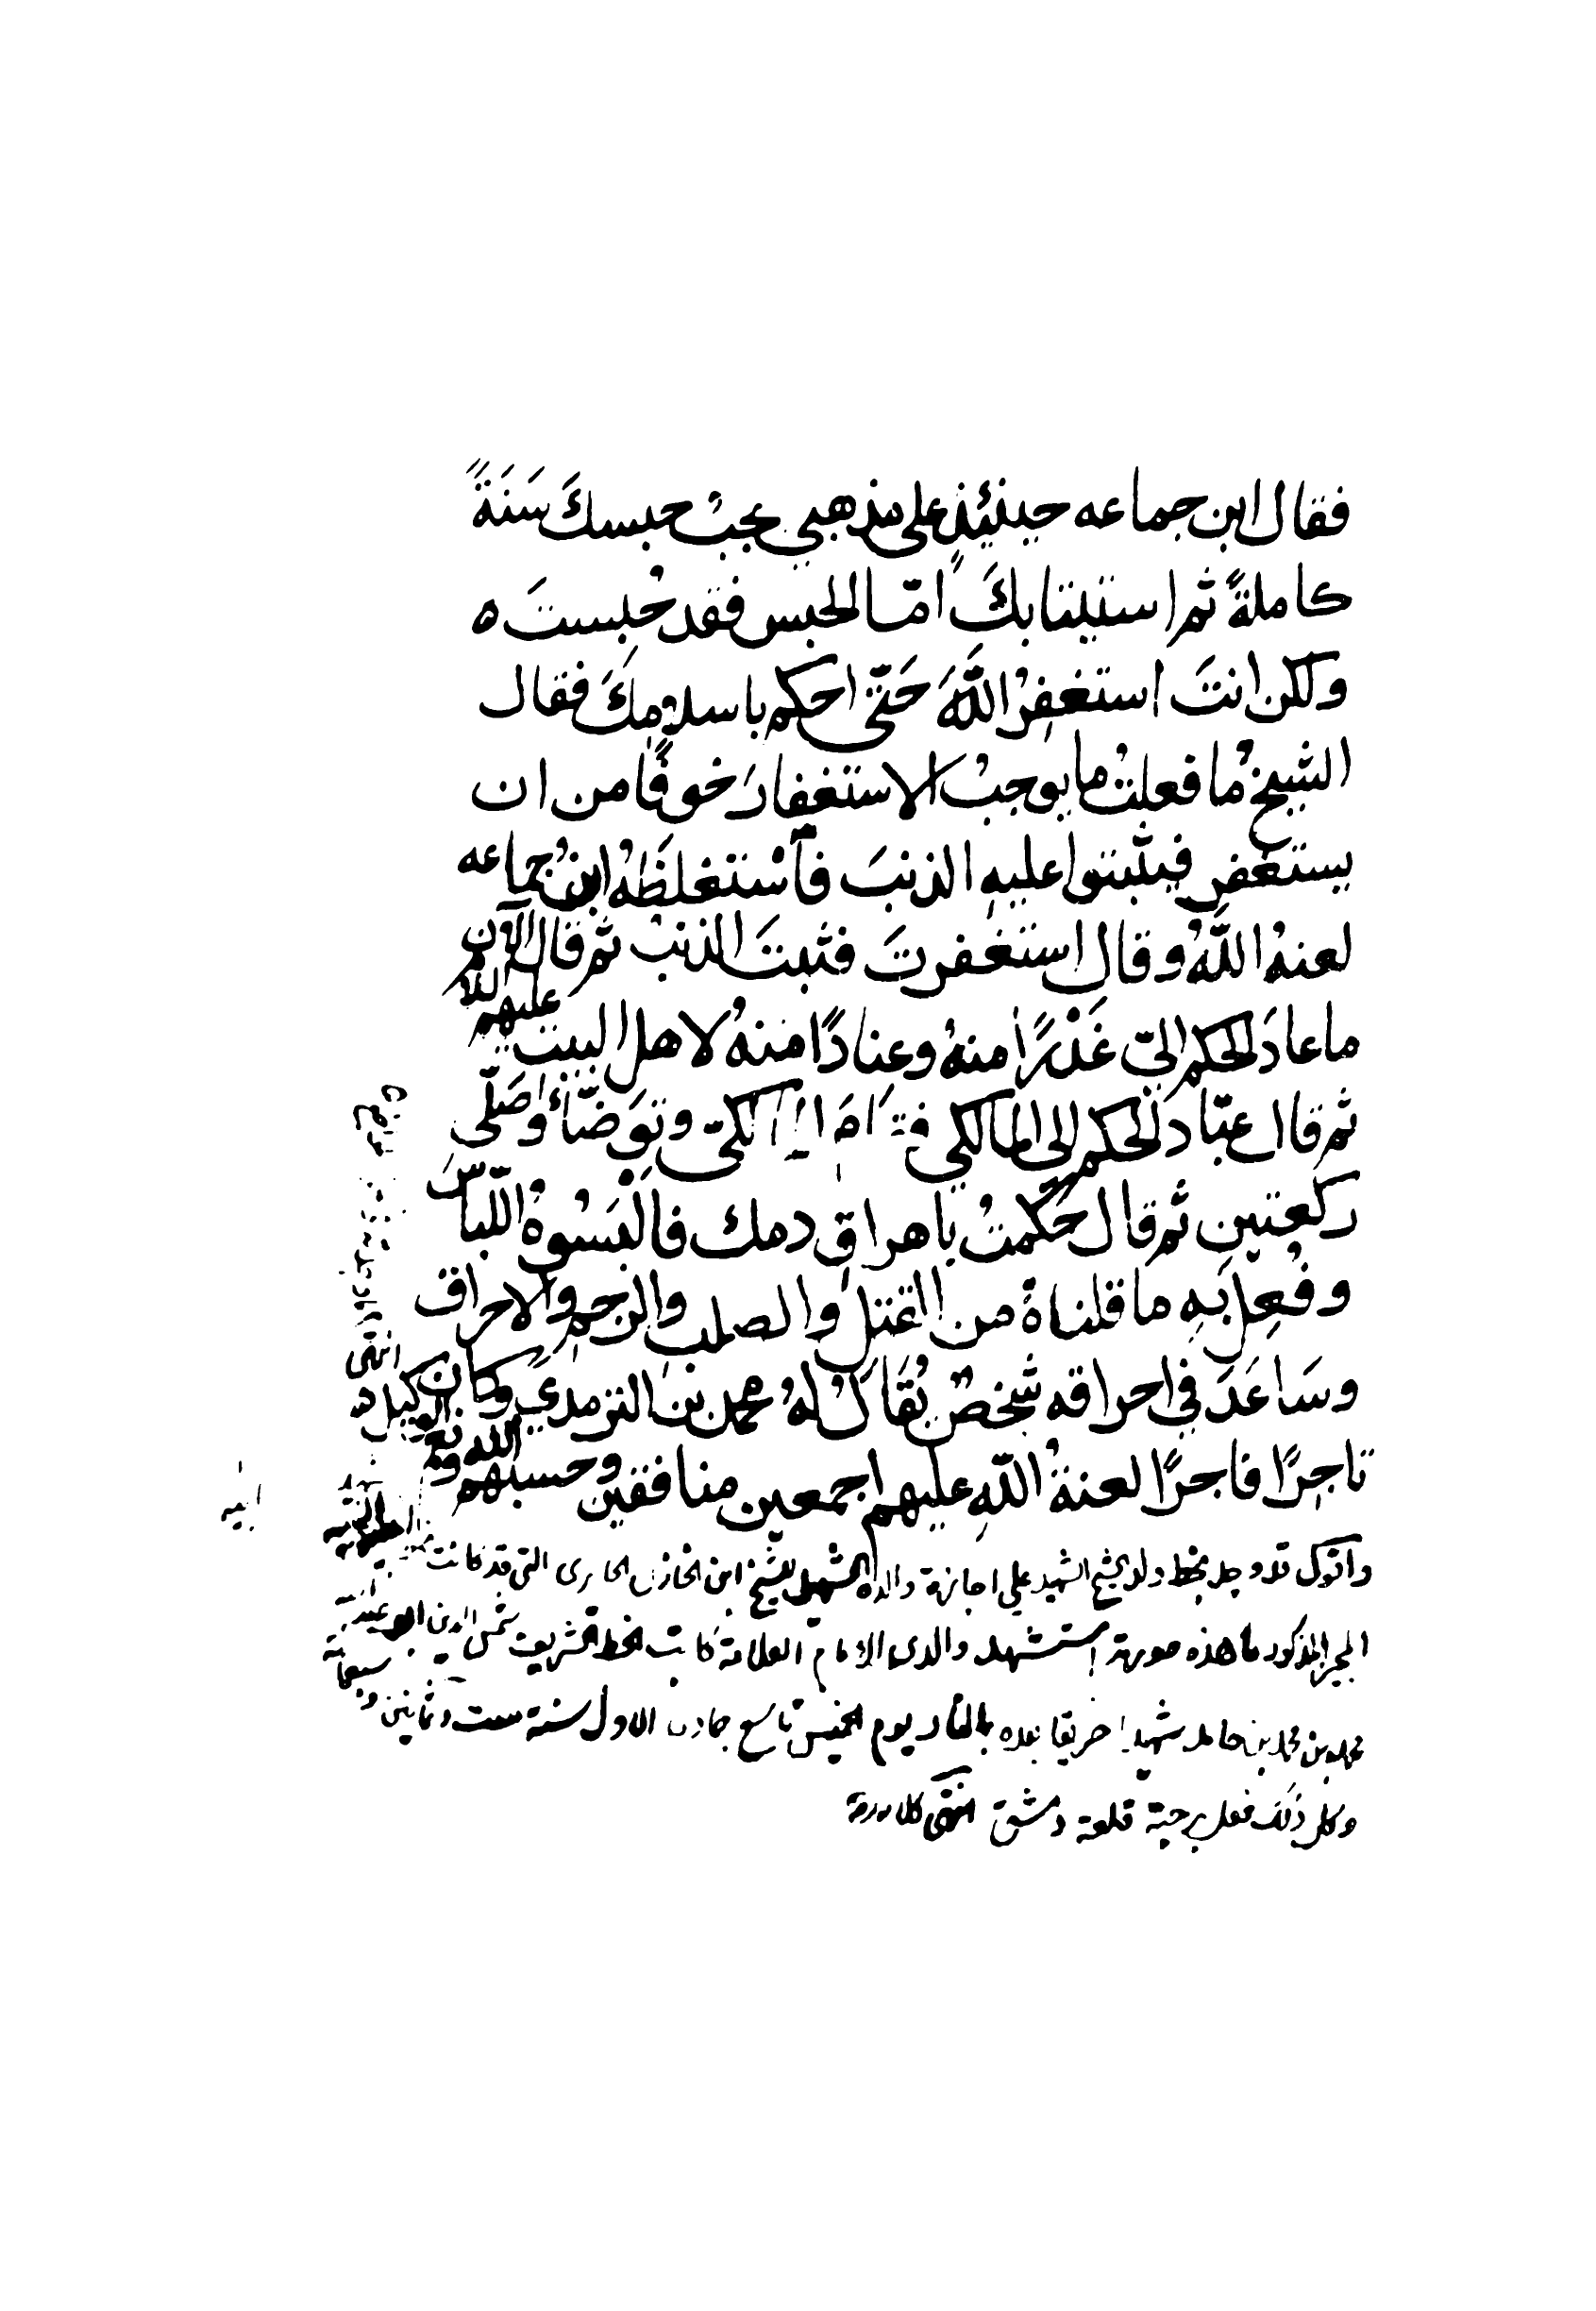 فقال ابن جماعه حينئذٍ على مذهبي يجبُ حبسكَ سَنَةً
كاملةً ثم استيتابكَ امّا الحبس فقد حُبِستَ ه
ولكن انتَ استغفِرُ اللّهَ حَتّى احكم باسلامِكَ فقال
الشيخُ ما فعلتُ ما يوجبُ الاستغفارَ خوفًا من ان
يستغفر فيثبتوا عليهِ الذنبَ فآستغلَظَهُ ابنُ جماعه
لعنهُ اللّهُ وقال استغفرتَ فثبتَ الذنبُ ثم قال الآن
ما عادَ الحكم اليّ غَدْرًا منهُ وعنادًا منهُ لاهل البيت عليهم السلام
ثم قال عبّاد الحكم الى المالكي فقام المالكي وتوَضّأ وصَلّى
ركعتينِ ثم قال حَكمتُ باهراق دمك فالبَسُوهُ اللّباسَ
وفُعِلَ بهِ ما قلناهُ من القتل والصلبِ والرجمِ والاحراق
وسَاعَدَ في احراقه شخصٌ يُقَالُ لهُ محمد بن الترمذي وكان
تاجِرًا فاجرًا لعنةُ اللّهِ عليهم اجمعين منافقين وحسبهم الله
واقول قد وجد بخط ولد الشيخ الشهيد على اجازة والده الشهيد للشيخ ابن الخازن الحايرى التى قد كانت
المجيز المذكور ما هذه صورته استشهد والدى الامام العلامة كاتب الخط الشريف شمس الدين ابو عبد الله
محمد بن محمد بن حامد شهيدا حريقا بعده بالنار يوم الخميس تاسع جمادى الاول سنة ست وثمانين وسبعمائة
وكل ذلك فعل برحبة قلعة دمشق انتهى كلامه
انتهى